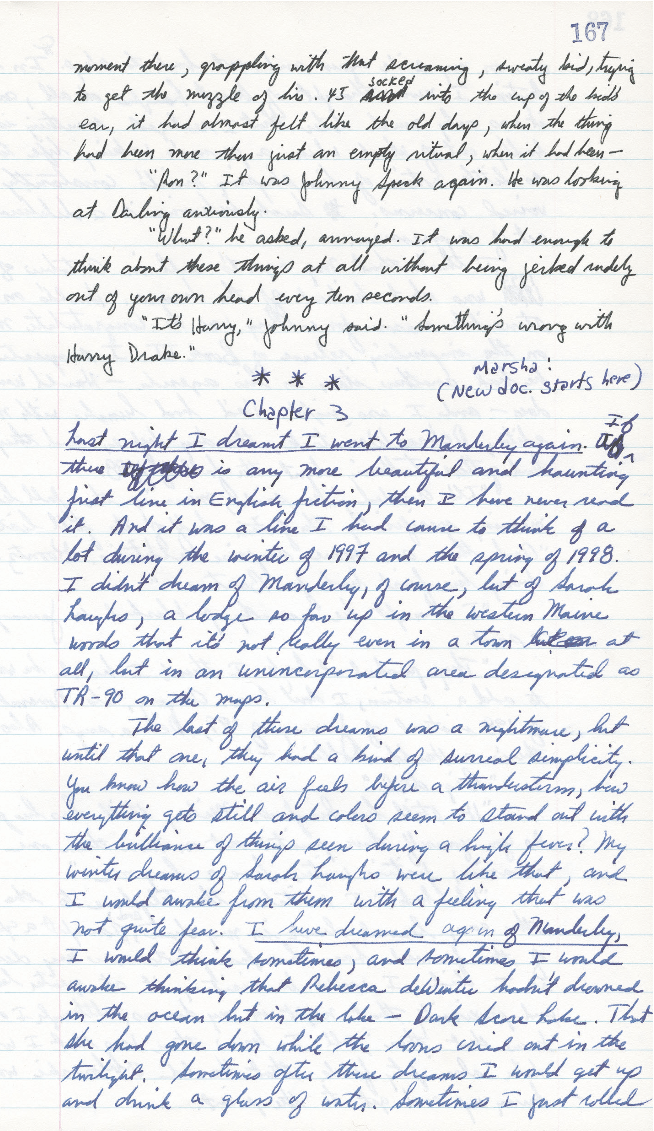 167
moment there, grappling with that screaming, sweaty kid, trying
socked
to get the muzzle of his .45 into the cup of the kid's
ear, it had almost felt like the old days, when the thing
had been more than just an empty ritual, when it had been—
"Ron?" It was Johnny Speck again. He was looking
at Darling anxiously.
"What?" he asked, annoyed. It was hard enough to
think about these things at all without being jerked rudely
out of your own head every ten seconds.
"It's Harry," Johnny said. "Something's wrong with
Harry Drake."
Marsha:
* * *
(New doc. starts here)
Chapter 3
If
Last night I dreamt I went to Manderley again.
there is any more beautiful and haunting
first line in English fiction, then I have never read
it. And it was a line I had cause to think of a
lot during the winter of 1997 and the spring of 1998.
I didn't dream of Manderley, of course, but of Sarah
Laughs, a lodge so far up in the western Maine
woods that it's not really even in a town at
all, but in an unincorporated area designated as
TR-90 on the maps.
The last of these dreams was a nightmare, but
until that one, they had a kind of surreal simplicity.
You know how the air feels before a thunderstorm, how
everything gets still and colors seem to stand out with
the brilliance of things seen during a high fever? My
winter dreams of Sarah Laughs were like that, and
I would awake from them with a feeling that was
not quite fear. I have dreamed again of Manderley,
I would think sometimes, and sometimes I would
awake thinking that Rebecca deWinter hadn't drowned
in the ocean but in the lake — Dark Score Lake. That
she had gone down while the loons cried out in the
twilight. Sometimes after these dreams I would get up
and drink a glass of water. Sometimes I just rolled